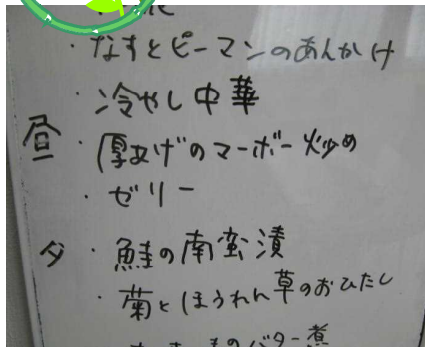 ・なすとピーマンのあんかけ
・冷やし中華
昼 ・厚あげのマーボー炒め
・ゼリー
夕 ・鮭の南蛮漬
・菊とほうれん草のおひたし
のバター煮